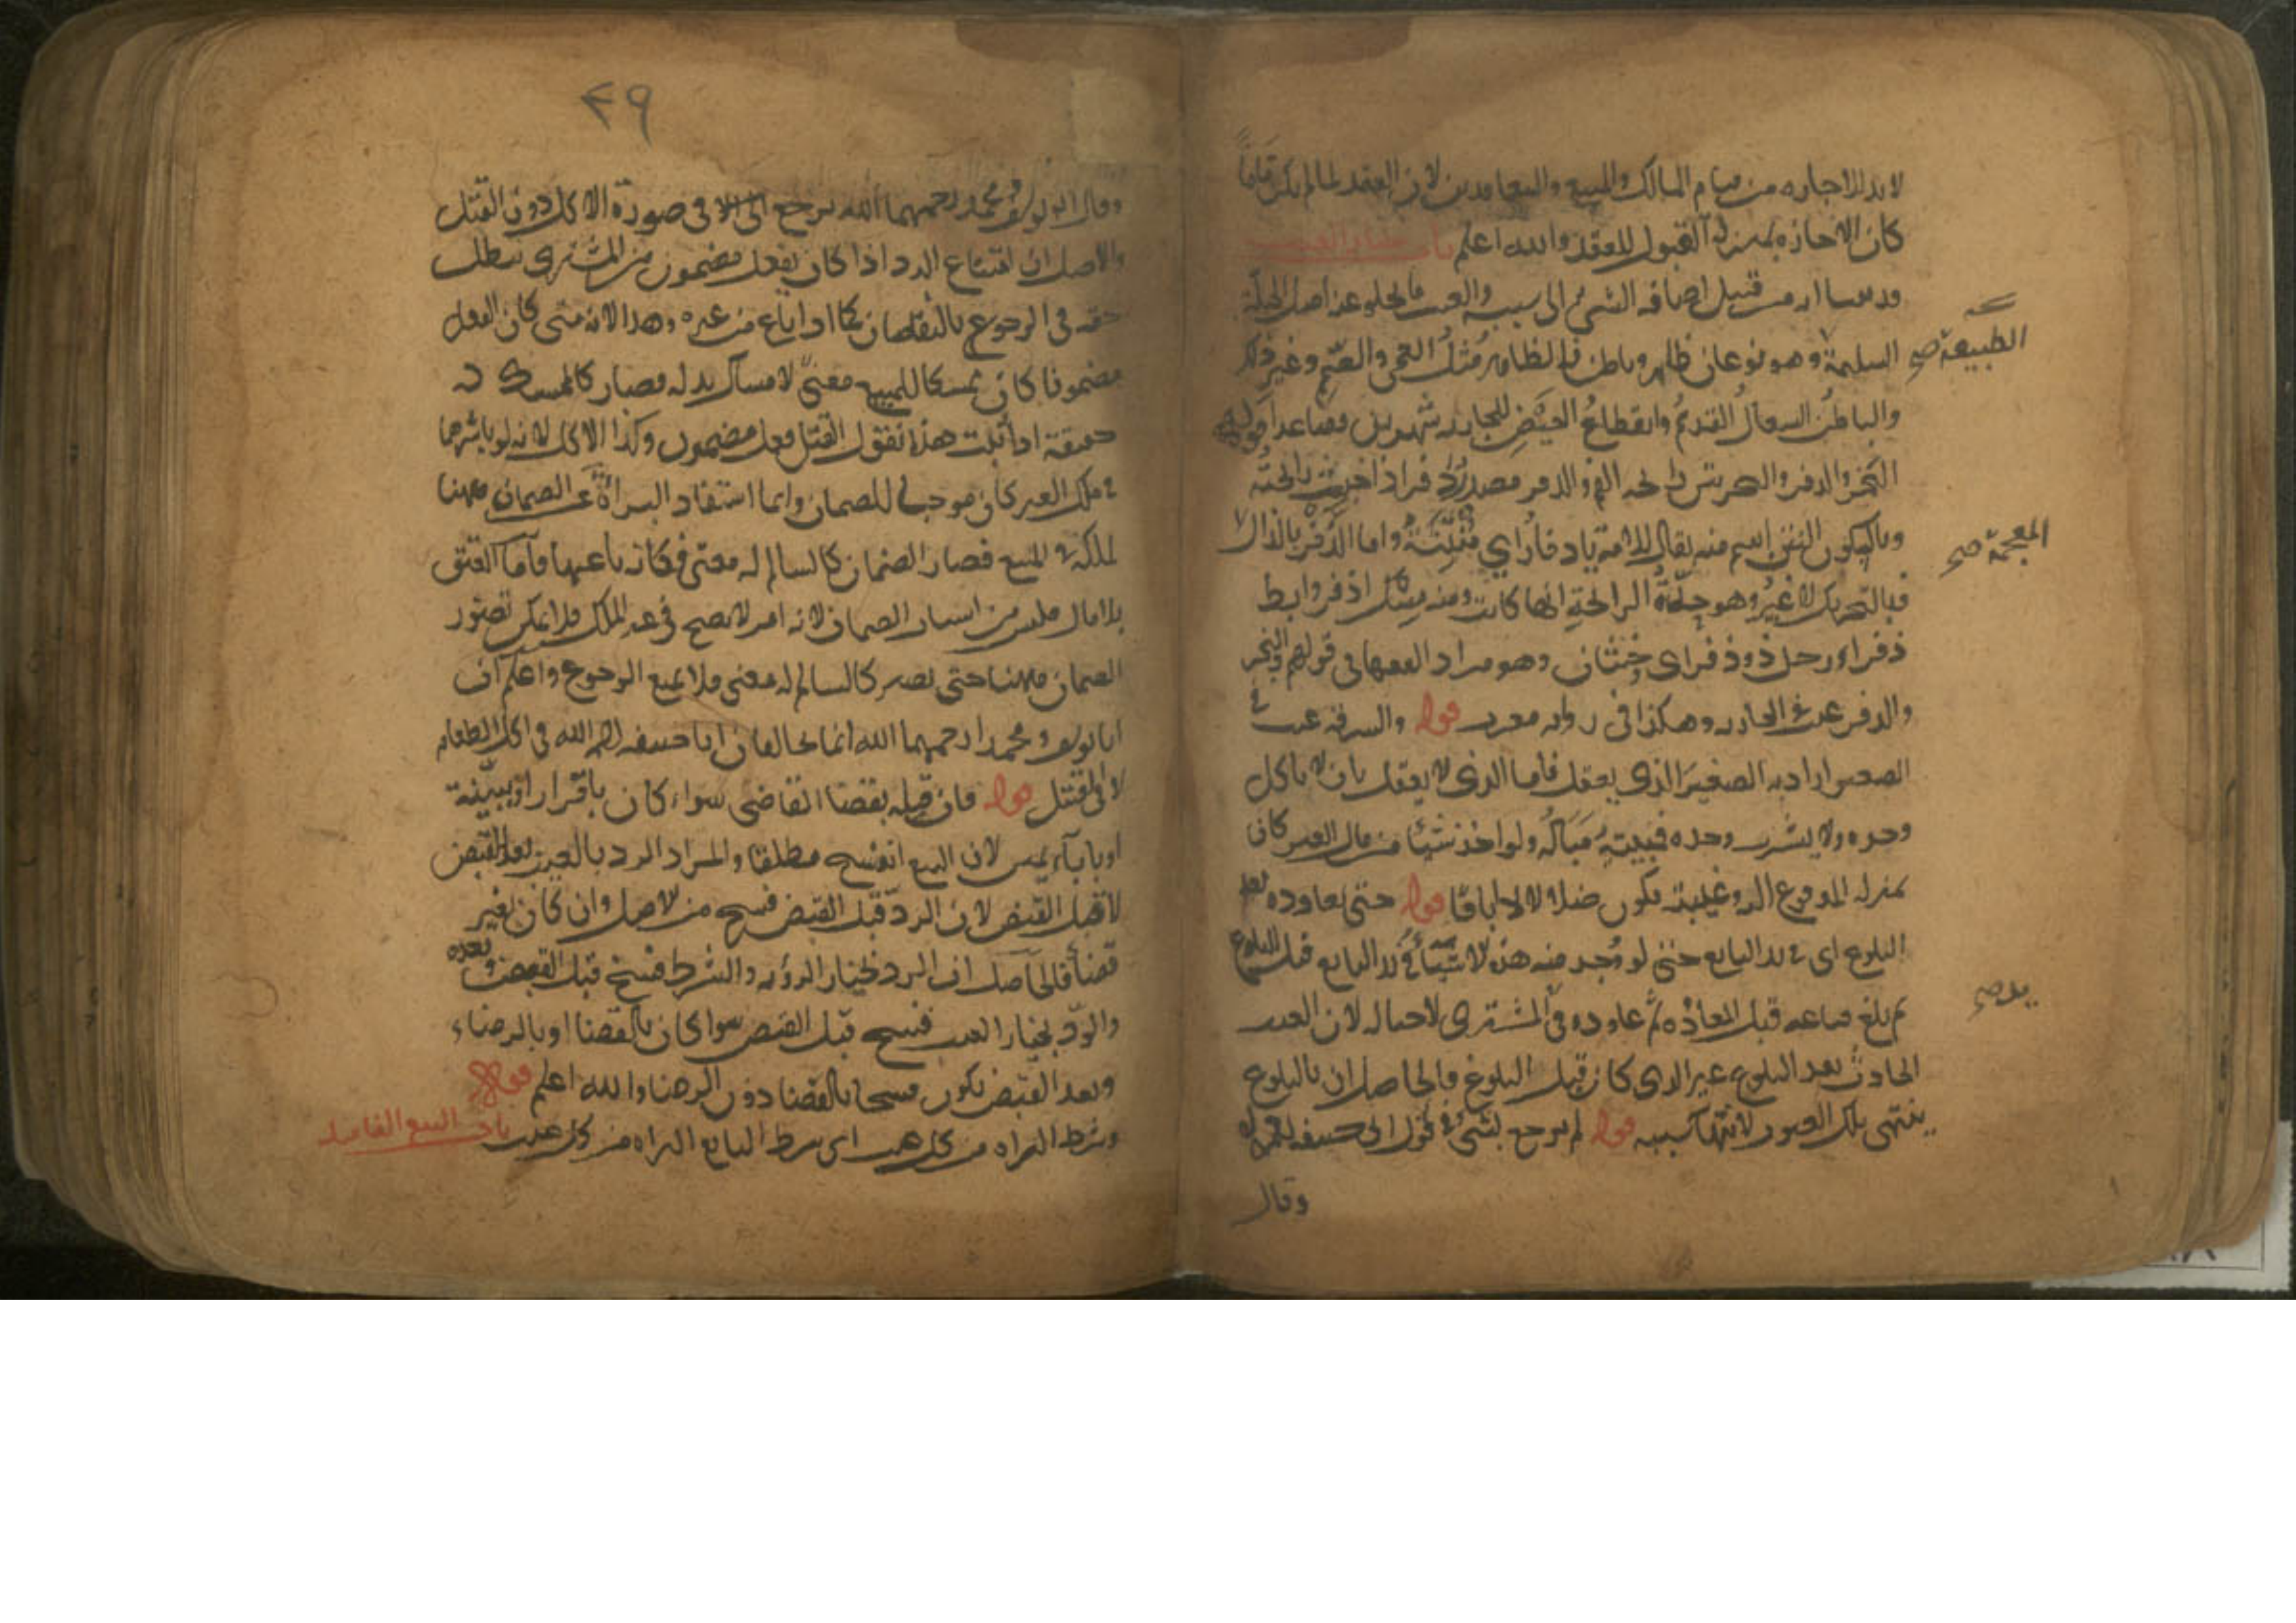 لابد للاجازه من قيام المالك والمبيع والمتعاقدين لان العقد لما لم يكن تاماً
كان الاجازه بمنزلة القبول للعقد والله اعلم باب خيار العيب
من قبيل اضافه الشئ الى سببه والعيب ما يخلو عنه اصل الخلقة
الطبيعة صح
السليمة وهو نوعان ظاهر وباطن فالظاهر مثل العمى والصمم وغير ذلك
والباطن السعال القديم وانقطاع الحيض للجاريه شهرين فصاعدا قوله
البخر والدفر والدفر مصدر دفر اذا خبثت رائحته
المعجمة صح
وبالسكون النتن اسم منه يقال للامة يا دفار اي منتنة واما الذفر بالذال
فبالتحريك لا غير وهو حدّة الرائحة ايها كانت ومنه مسك اذفر وابط
ذفراء ورجل ذو ذفر اى خبثان وهو مراد الفقها فى قولهم والبخر
والدفر عيب فى الجاريه وهكذا فى قوله والسرقه عيب فى
الصغير اراد به الصغير الذى يعقل فاما الذى لا يعقل بان لا ياكل
وحده ولا يشرب وحده ولو اخذ شيئا من مال الغير كان
بمنزله فيكون ضلالا لا اباقا قوله حتى يعاوده بعد
البلوغ اى فى يد البايع حتى لو وجد منه هذه الاشيآء فى يد البايع قبل البلوغ
يد صح
ثم بلغ فباعه قبل المعاوده ثم عاوده فى المشترى لان العيب
الحادث بعد البلوغ غير الذى كان قبل البلوغ فالحاصل ان بالبلوغ
ينتهى تلك العيوب لانتهآ سببه قوله لم يرجع بشئ فى قول ابى حنيفه
وقال
٤٩
وقال ابو يوسف ومحمد رحمهما الله يرجع فى صورة الاكل دون القتل
والاصل ان امتناع الرد اذا كان بفعل مضمون من المشترى يبطل
حقه فى الرجوع بالنقصان كما اذا باع من غيره وهذا لانه متى كان الفعل
مضمونا كان ممسكا للمبيع معنىً لامساك بدله فصار كالممسك له
حقيقة اذا ثبت هذا نقول القتل فعل مضمون وكذا الاكل لانه لو باشرهما
فى ملك الغير كان موجبا للضمان وانما استفاد البراءة عن الضمان ههنا
لملكه فى المبيع فصار الضمان كالسالم له معنى فكانه باعهما فاما العتق
بلا مال فليس من اسباب الضمان لانه امر لا يصح فى غير الملك فلا يمكن تصور
الضمان ههنا حتى يصير كالسالم له معنى فلا يمنع الرجوع واعلم ان
ابا يوسف ومحمدا رحمهما الله انما خالفا ابا حنيفه رحمه الله فى اكل الطعام
لا فى القتل قوله فان قبله بقضا القاضى سواء كان باقرار او ببينة
او باباء يمين لان البيع انفسخ مطلقا والمراد الرد بالعيب بعد القبض
لا قبل القبض لان الردّ قبل القبض فسخ من الاصل وان كان بغير
قضأ فالحاصل ان الرد بخيار الرؤيه والشرط فسخ قبل القبض وبعده
والردّ بخيار العيب فسخ قبل القبض سوا كان بالقضا او بالرضاء
وبعد القبض يكون فسخا بالقضا دون الرضا والله اعلم قوله
وشرط البراه من كل عيب اى شرط البايع البراه من كل عيب باب البيع الفاسد